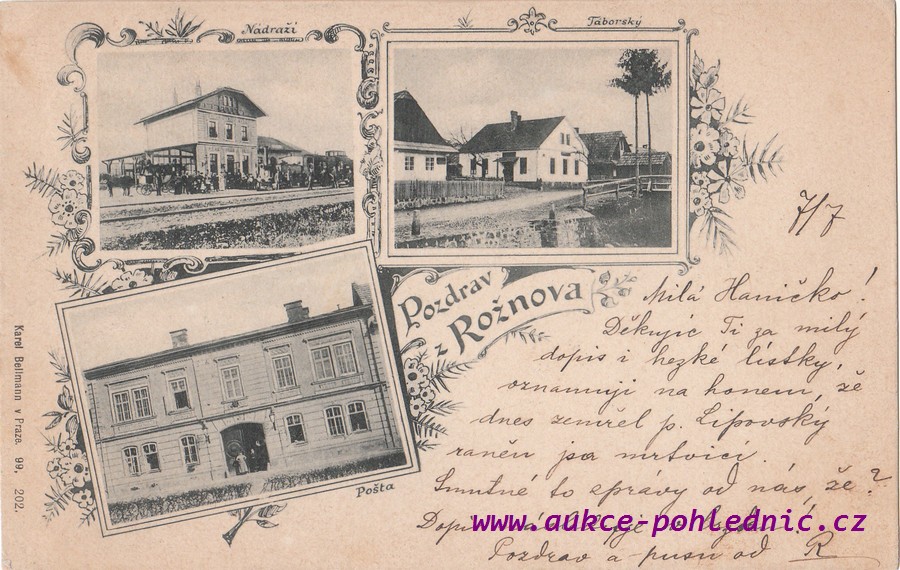 Nádraží
Táborský
Pozdrav
z Rožnova
Pošta
Karel Bellmann v Praze. 99, 202.
7/7
Milá Haničko!
Děkujíc Ti za milý
dopis i hezké lístky,
oznamuji na honem, že
dnes zemřel p. Lipovský
raněn jsa mrtvicí.
Smutné to zprávy od nás že?
Dopis
www.aukce-pohlednic.cz
Pozdrav a pusu od R